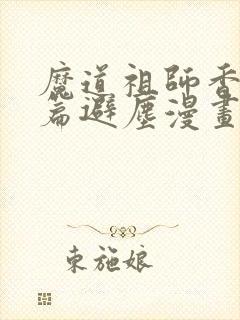 魔道祖師香
篇避塵漫畫
東施娘